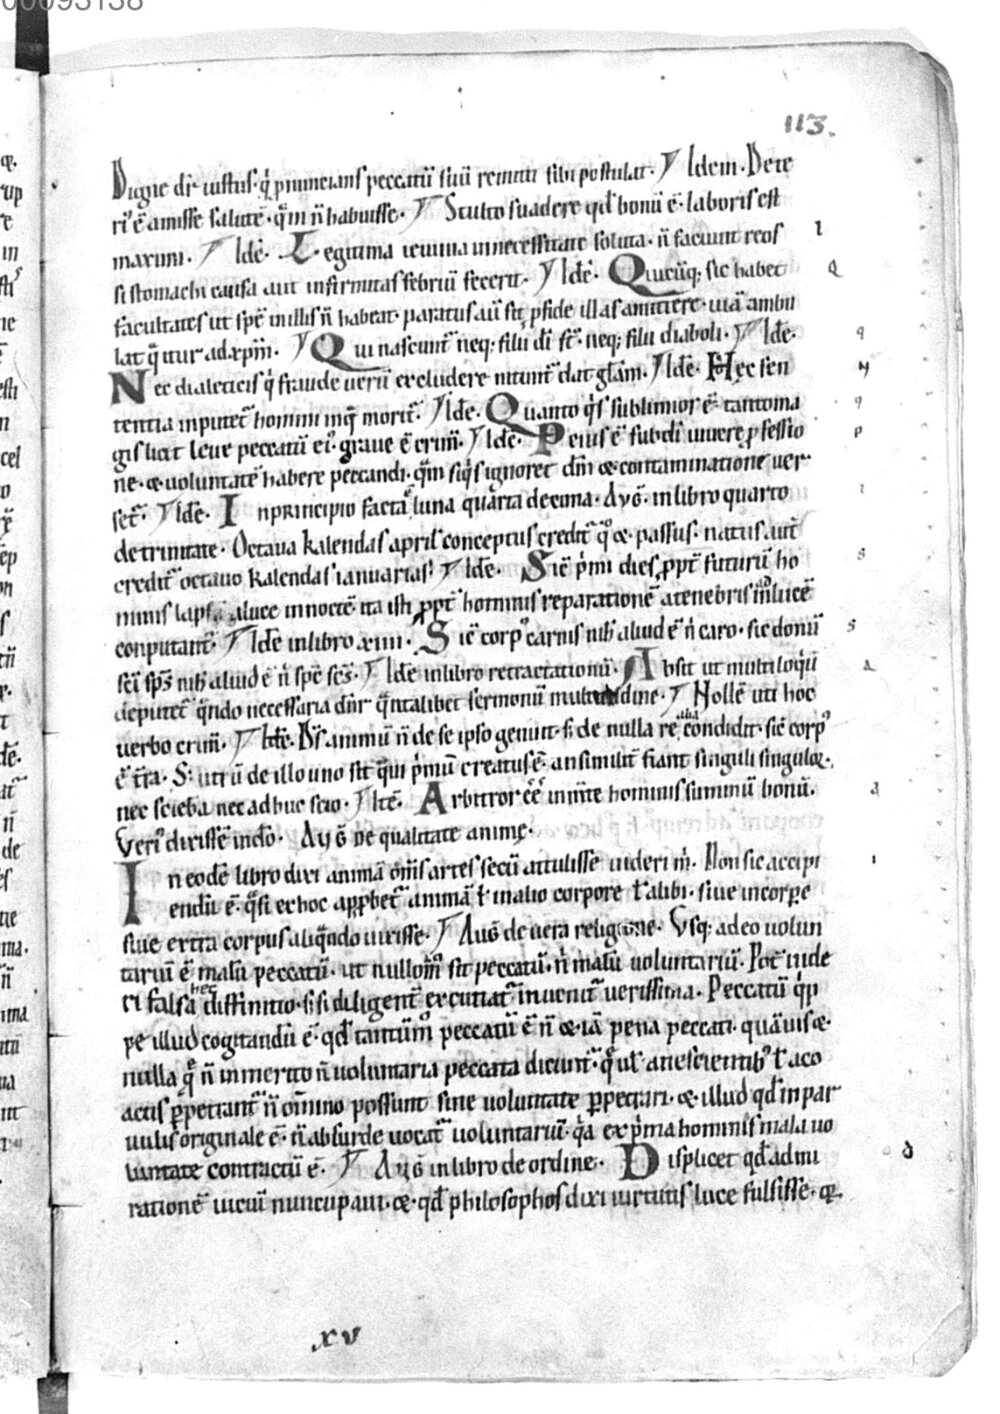 00093138
113.
Digne dr̄ iustus. q̇ pnuncians peccatū suū remitti sibi postulat. Idem. Dete
ri' ē amisse salutē. q̄m n̄ habuisse. Stulto suadere qđ bonū ē. laboris est
maxımı. Idē. Legitima ieiunia innecessitate soluta. n̄ faciunt reos
l
si stomachi causa aut infirmitas febriū fecerit. Idē. Quicūq; sic habet
Q
facultates ut spē in illis n̄ habeat. paratus aū sit, p fide illas amittere. uiā ambu
lat q̄ itur ad xpm̄. Qui nascunt̄ neq; filii di st̄. neq; filii diaboli. Idē.
q
Nec dialeticis q̇ fraude uerū excludere nitunt̄ dat glām. Idē. Hęc sen
N
tentia inputet̄ homini inq̄ morit̄. Idē. Quanto q̇s sublimior ē. tantoma
q
gis licit leue peccatū ei'. graue ē crim̄. Idē. Peius ē sub di uiuere p fessio
p
ne. & uoluntatē habere peccandi. q̄m siq̇s ignoret dm̄ & contaminatione uer
set̄. Idē. In principio facta ē luna quarta decima. Auḡ. in libro quarto
i
de trinitate. Octaua kalendas april' conceptus credit̄ q̇ & passus. natus aut̄
credit̄ octauo kalendas ianuarias. Idē. Sic ṗmi dies, ppt̄ futurū ho
s
minis lapsū a luce innoctē. ita isti ppt̄ hominis reparationē a tenebris in lucē
conputant̄. Idē in libro xiiii. Sic corp' carnis nih̄ aliud ē n̄ caro. sic donū
s
sci sps̄ nih̄ aliud ē n̄ spc̄ scs̄. Idē in libro retractationū. Absit ut multiloq̇ū
a
deputet̄ q̄ndo necessaria dn̄r q̄ntalibet sermonū multitudine. Nollē uti hoc
uerbo crim̄. Idē. Ds̄ animū n̄ de se ipso genuit. sꝫ de nulla re alia condidit. sic corp'
ē t̄ra. S; utrū de illo uno sit qui ṗmū creatus ē. an similit̄ fiant singuli singulor.
nec scieba nec adhuc scio. Itē. Arbitror ēē in m̄te hominis summū bonū.
a
Veri' dixissē in do. Auḡ de qualitate animę.
In eodē libro dixi animā om̄s artes secū attulisse uideri m̄. Non sic accipi
i
endū ē. q̄si ex hoc ap̄pbet̄ animā ł in alio corpore ł alibi. siue in corpe
siue extra corpus aliq̄ndo uixisse. Auḡ de uera religione. Vsq; adeo uolun
tariū ē malū peccatū. ut nullom̄o sit peccatū. n̄ malū uoluntariū. Pot̄ uide
ri falsa hec diffinitio. sꝫ si diligent̄ excutiat̄ inuenit̄ uerissima. Peccatū q̇p
pe illud cogitandū ē. qđ tantūm̄o peccatū ē n̄ & iā pena peccati. quāuis &
nulla q̄ n̄ inmerito n̄ uoluntaria peccata dicunt̄. q̄ uł a nescientib' ł a co
actis ppetrant̄ n̄ omino possunt sine uoluntate ppetrari. & illud qđ in par
uulis originale ē. n̄ absurde uocat̄ uoluntariū. q̇a ex ṗma hominis mala uo
luntate contractū ē. Auḡ in libro de ordine. Displicet qđ admi
d
rationē uicui nuncupaui. & qđ philosophos dixi uirtutis luce fulsisse. q̄
xv